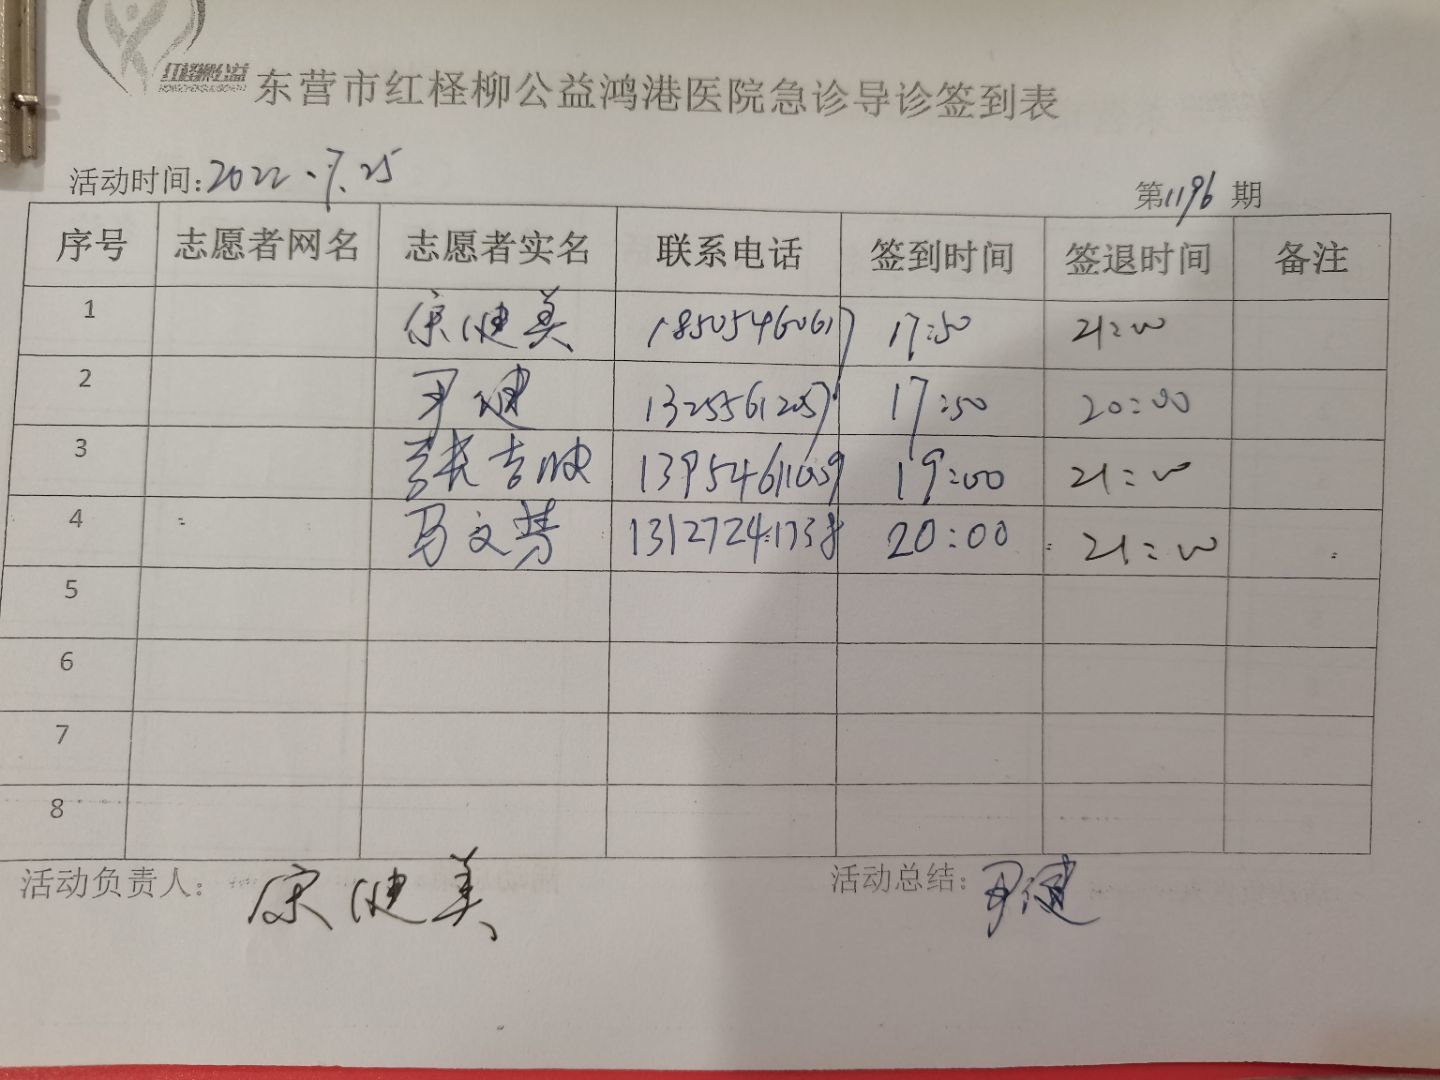 红柽柳公益
东营市红柽柳公益鸿港医院急诊导诊签到表
活动时间:2022.7.25 第1196期
序号 志愿者网名 志愿者实名 联系电话 签到时间 签退时间 备注
1 宋健美 18505460617 17:50 21:00
2 尹健 13255612057 17:50 20:00
3 张吉映 13954611059 19:00 21:00
4 马文慧 13127241738 20:00 21:00
5
6
7
8
活动负责人: 宋健美 活动总结: 尹健